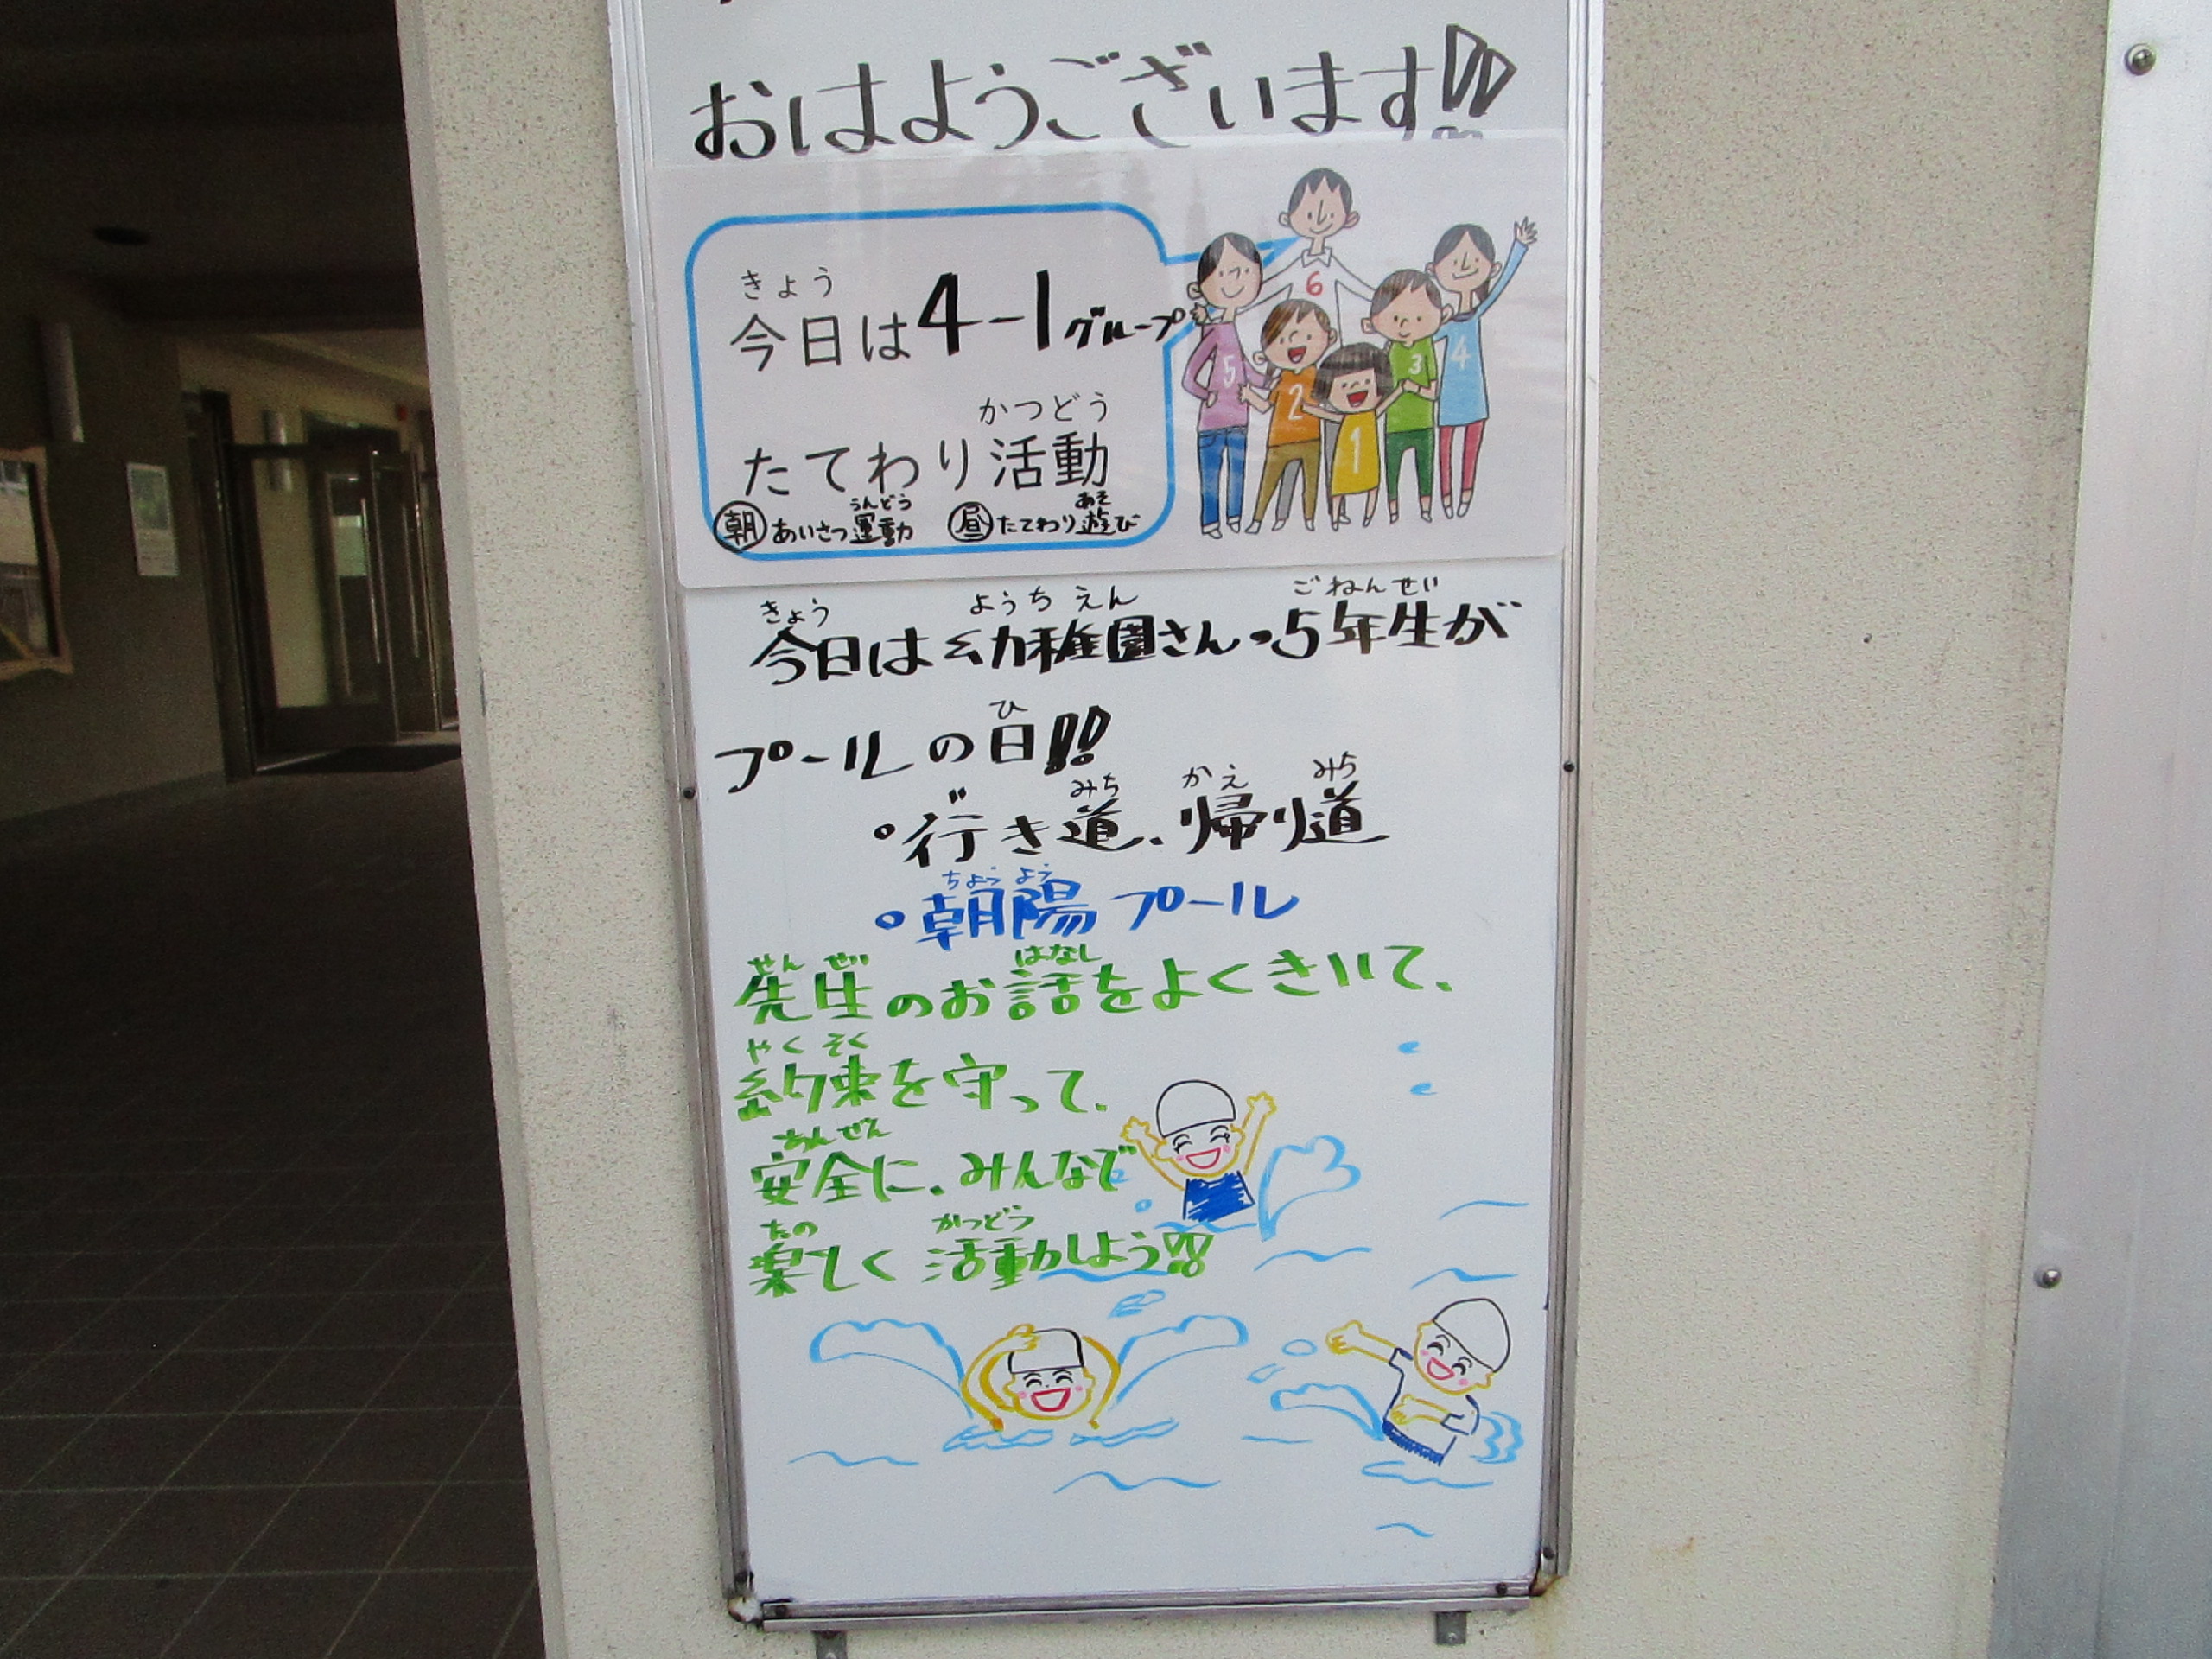 おはようございます!!
きょう
今日は4-1グループ
かつどう
たてわり活動
うんどう あそ
朝 あいさつ運動 昼 たてわり遊び
6
5 2 1 3 4
きょう ようちえん ごねんせい
今日は幼稚園さん・5年生が
ひ
プールの日!!
みち かえ みち
・行き道、帰り道
ちょうよう
・朝陽プール
せんせい はなし
先生のお話をよくきいて、
やくそく
約束を守って、
あんぜん
安全に、みんなで
たの かつどう
楽しく活動しよう!!